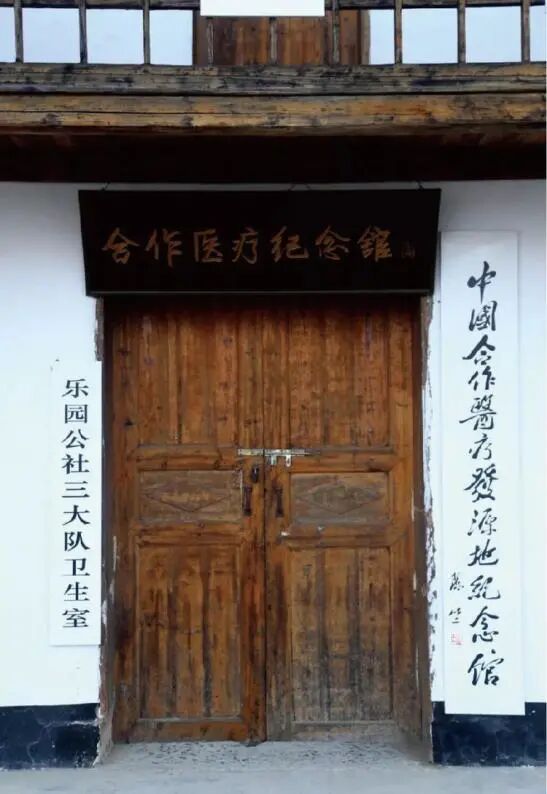 合作医疗纪念馆
中國合作醫疗發源地纪念馆
乐园公社三大队卫生室